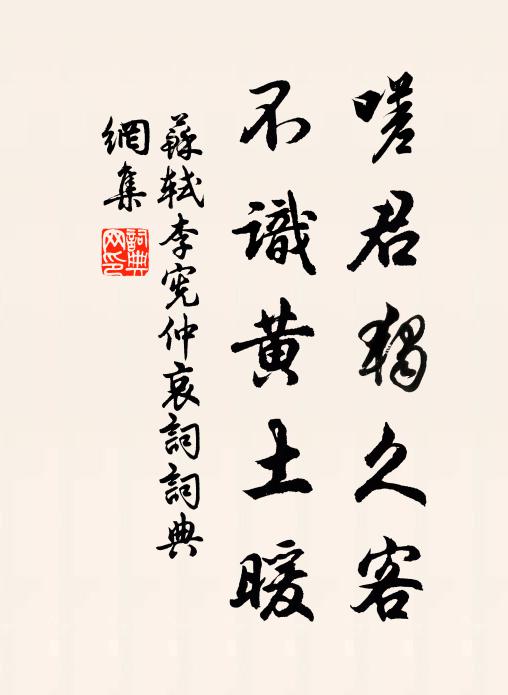 嗟君獨久客
不識黃土暖
蘇軾李憲仲哀詞詞典
網集
詞典
网印